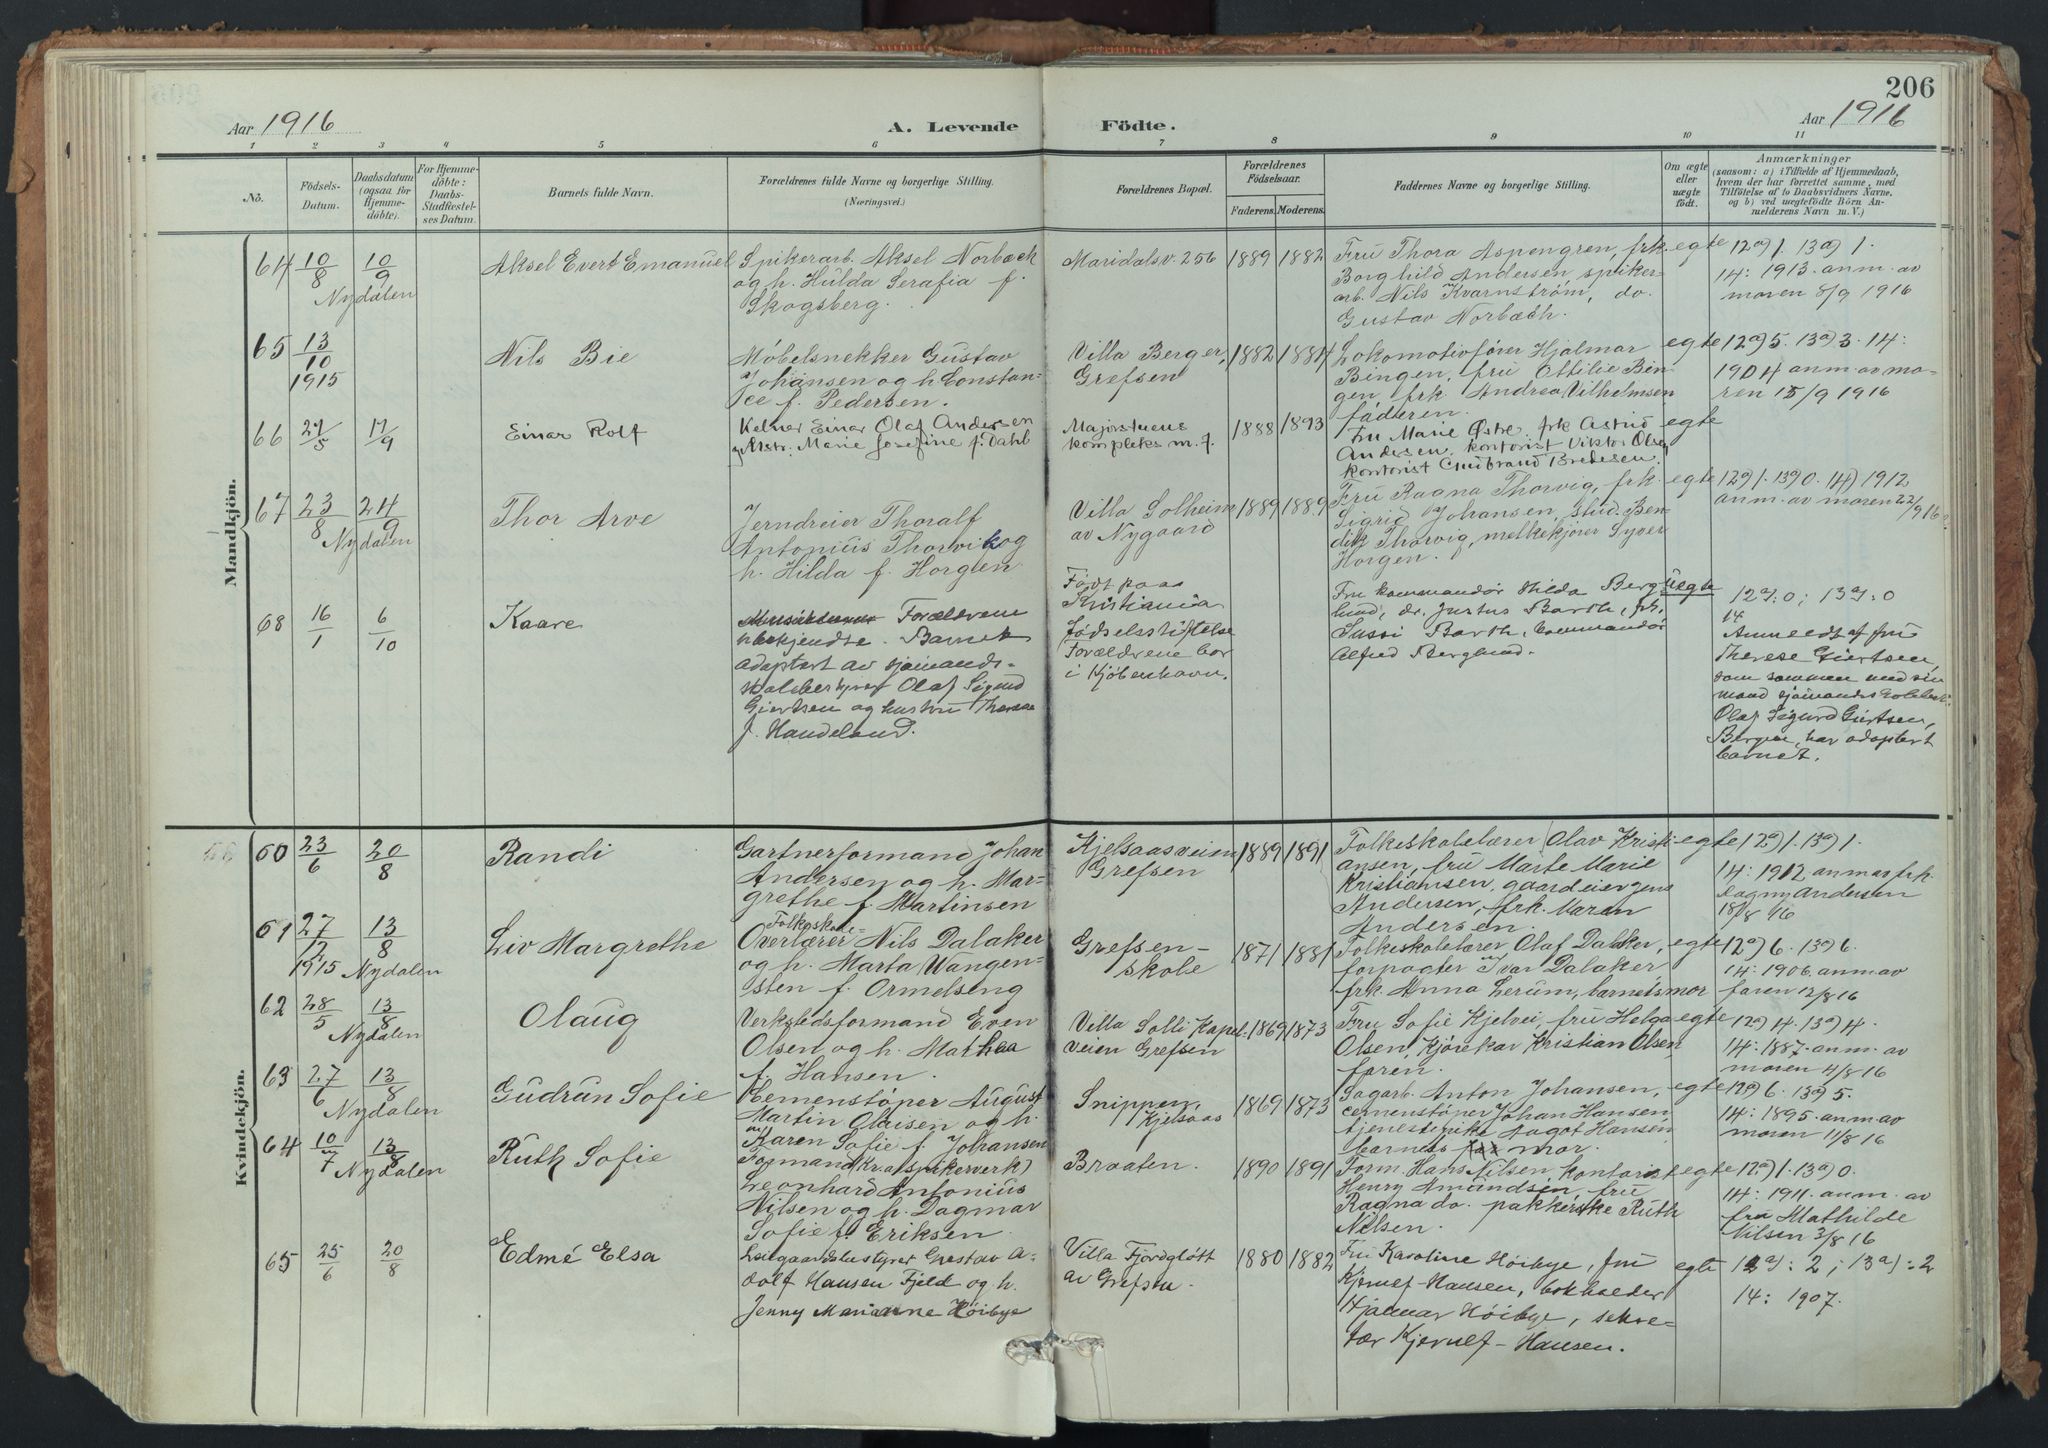 206
Aar 1916
A. Levende Födte.
Aar 1916
1 2 3 4 5 6 7 8 9 10 11
No.
Födsels-
Datum.
Daabsdatum
(ogsaa for
Hjemme-
döbte).
For Hjemme-
döbte:
Daabs-
Stadfæstel-
ses Datum.
Barnets fulde Navn.
Forældrenes fulde Navne og borgerlige Stilling.
(Næringsvei.)
Forældrenes Bopæl.
Forældrenes
Födselsaar.
Faderens. Moderens.
Faddernes Navne og borgerlige Stilling.
Om ægte
eller
uægte
födt.
Anmærkninger
(saasom: a) i Tilfælde af Hjemmedaab,
hvem der har forrettet samme, med
Tilföielse af to Daabsvidners Navne,
og b) ved uægtefödte Börn An-
melderens Navn m. V.)
Mandkjön.
64
10/8
10/9
Nydalen
Aksel Evert Emanuel
Spikerarb. Aksel Norbach
og h. Hulda Serafia f.
Skogsberg.
Maridalsv. 256
1889
1882
Fru Thora Aspengren, frk.
Borghild Andersen, spiker-
arb. Nils Kvarnström, do.
Gustav Norbach.
egte
12a) 1. 13a) 1.
14: 1913. anm. av
moren 8/9 1916
65
13/10
1915
Nils Bie
Møbelsnekker Gustav
Johansen og h. Constan-
ce f. Pedersen.
Villa Berger,
Grefsen
1882
1884
Lokomotivfører Hjalmar
Bingen, fru Ottilie Bin-
gen, frk. Andrea Vilhelmsen
faderen.
egte
12a) 5. 13a) 3. 14:
1904 anm. av mo-
ren 15/9 1916
66
17/9
Einar Rolf
Kelner Einar Olaf Andersen
og Hstr. Marie Josefine f. Dahl
Majorstuens
kompleks m. f.
1888
1893
Fru Marie Østre, frk Astrid
Andersen, kontorist Viktor Olsen
kontorist Gudbrand Bredesen.
egte
67
23/8
24/9
Nydalen
Thor Arve
Jerndreier Thoralf
Antonius Thorvik og
h. Hilda f. Horgen
Villa Solheim
av Nygaard
1889
1889
Fru Ragna Thorvig, frk.
Sigrid Johansen, stud. Ben-
dik Thorvig, melkekjører Syver
Horgen.
egte
12a) 1. 13a) 0. 14) 1912
anm. av moren 22/9 16
68
16/1
6/10
Kaare
Forældrene
ubekjendte. Barnet
adoptert av sjømands-
Olaf Sigurd
Giertsen og hustru Therese
f. Haudeland.
Født paa
Kristiania
Fødselsstiftelse
Forældrene bor
i Kjøbenhavn.
Fru kommandør Hilda Berg-
lund, dr. Justus Barth, frk.
Sussi Barth, kommandør
Alfred Berglund.
uegte
12a): 0; 13a): 0
14
Anmeldt af fru
Therese Giertsen,
som sammen med sin
mand
Olaf Sigurd Giertsen,
Bergen, har adoptert
barnet.
Kvindekjön.
60
23/6
20/8
Randi
Gartnerformand Johan
Andersen og h. Mar-
grethe f. Martinsen
Kjelsaasveien
Grefsen
1889
1891
Folkeskolelærer Olav Kristi-
ansen, fru Marte Marie
Kristiansen, gaardeier Jens
Andersen, frk. Maren
Andersen.
egte
12a) 1. 13a) 1.
14: 1912 anm av frk.
Dagny Andersen
18/8 16
61
27/12
1915
13/8
Nydalen
Liv Margrethe
Folkeskole-
Overlærer Nils Dalaker
og h. Marta Wangen-
sten f. Ormelseng
Grefsen-
skole
1871
1881
Folkeskolelærer Olaf Dalaker,
forpagter Ivar Dalaker
frk. Anna Lerum, barnets mor
egte
12a) 6. 13a) 6.
14: 1906. anm av
faren 12/8 16
62
28/5
13/8
Nydalen
Olaug
Verkstedsformand Even
Olsen og h. Mathea
f. Hansen.
Villa Solli Kapel-
veien Grefsen
1869
1873
Fru Sofie Kjelvei, fru Helga
Olsen, Kjørekar Kristian Olsen
faren.
egte
12a) 4. 13a) 4.
14: 1887. anm. av
moren 4/8 16
63
27/6
13/8
Nydalen
Gudrun Sofie
Cementstøper August
Martin Olaisen og h.
Karen Sofie f. Johansen
Snippen,
Kjelsaas
1869
1873
Sagarb. Anton Johansen,
cementstøper Johan Hansen
tjenestepike Aagot Hansen
barnets mor.
egte
12a) 6. 13a) 5.
14: 1895. anm av
moren 11/8 16
64
10/7
13/8
Nydalen
Ruth Sofie
Formand
Leonhard Antonius
Nilsen og h. Dagmar
Sofie f. Eriksen
Braaten.
1890
1891
Form. Hans Nilsen, kontorist
Henry Amundsen, fru
Ragna do. pakkerske Ruth
Nilsen.
egte
12a) 1. 13a) 0.
14: 1911. anm. av
fru Mathilde
Nilsen 3/8 16
65
25/6
20/8
Edmé Elsa
Leiegaardsbestyrer Gustav A-
dolf Hansen Fjeld og h.
Jenny Marianne Høibye
Villa Fjordgløtt
av Grefsen
1880
1882
Fru Karoline Høibye, fru
Kjerulf-Hansen, bokholder
Hjalmar Høibye, sekre-
tær Kjerulf-Hansen.
egte
12a): 2; 13a): 2
14: 1907.